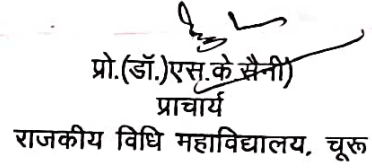 प्रो.(डॉ.)एस.के.सैनी)
प्राचार्य
राजकीय विधि महाविद्यालय, चूरू